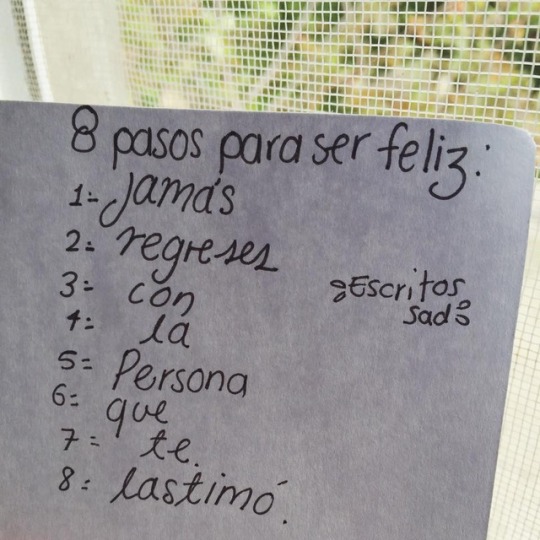 8 pasos para ser feliz:
1- Jamás
2: regreses
3: con
4: la
5: Persona
6: que
7: te.
8: lastimó.
Escritos
sad